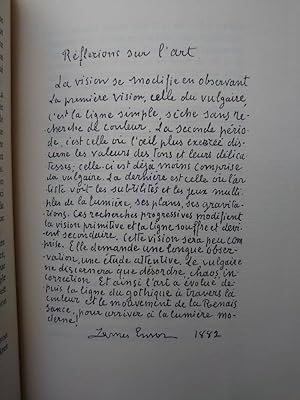 Réflexions sur l'art
La vision se modifie en observant
La première vision, celle du vulgaire,
c'est la ligne simple, sèche sans re-
cherche de couleur. La seconde pério-
de, c'est celle où l'œil plus exercé dis-
cerne les valeurs des tons et leurs délica-
tesses; celle-ci est déjà moins comprise
du vulgaire. La dernière est celle où l'ar-
tiste voit les subtilités et les jeux multi-
ples de la lumière, ses plans, ses gravita-
tions. Ces recherches progressives modifient
la vision primitive et la ligne souffre et devi-
ent secondaire. Cette vision sera peu com-
prise. Elle demande une longue obser-
vation, une étude attentive. Le vulgaire
ne discernera que désordre, chaos, in-
correction. Et ainsi l'art a évolué de-
puis la ligne du gothique à travers la
couleur et le mouvement de la Renais-
sance, pour arriver à la lumière mo-
derne!
James Ensor 1882